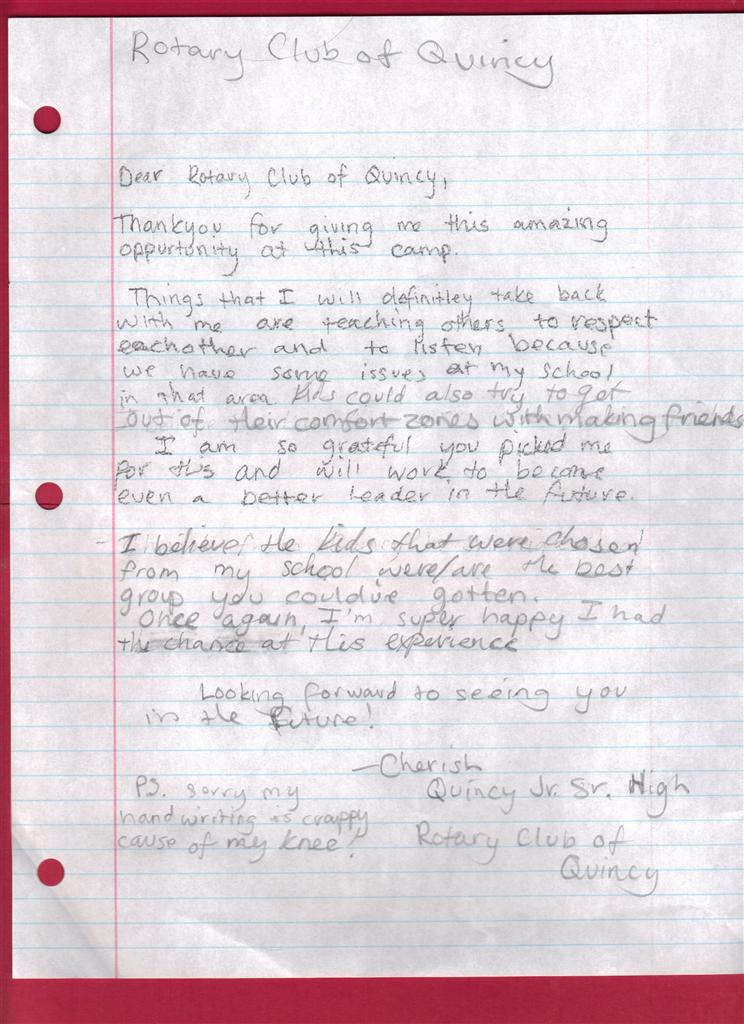 Rotary Club of Quincy
Dear Rotary Club of Quincy,
Thankyou for giving me this amazing
oppurtunity at this camp.
Things that I will definitley take back
with me are teaching others to respect
eachother and to listen because
we have some issues at my school
in that area. Kids could also try to get
out of their comfort zones with making friends
I am so grateful you picked me
for this and will work to become
even a better leader in the future.
I believe the kids that were chosen
from my school were/are the best
group you could've gotten.
Once again, I'm super happy I had
the chance at this experience
Looking forward to seeing you
in the future!
-Cherish
Quincy Jr. Sr. High
Rotary Club of
Quincy
P.S. sorry my
handwriting is crappy
cause of my knee!